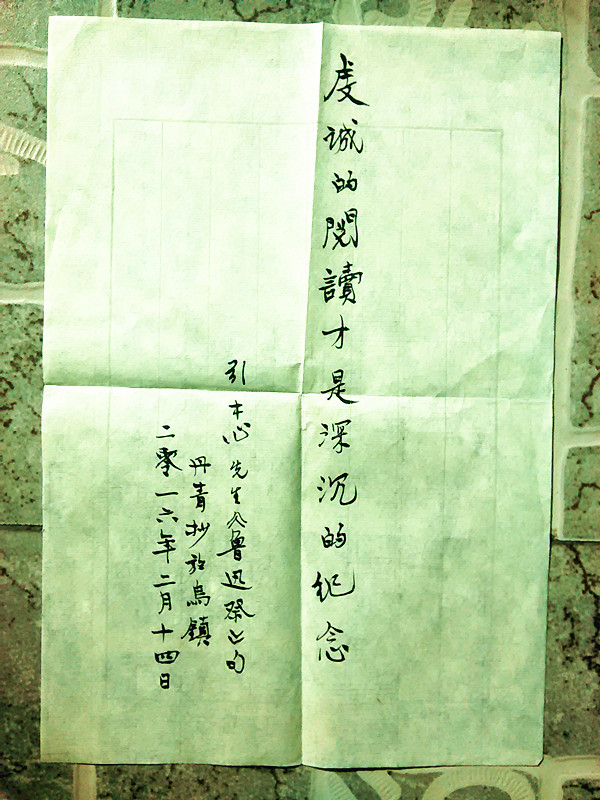 虔诚的閱讀才是深沉的纪念
引木心先生《鲁迅祭》句
丹青抄於烏鎮
二零一六年二月十四日